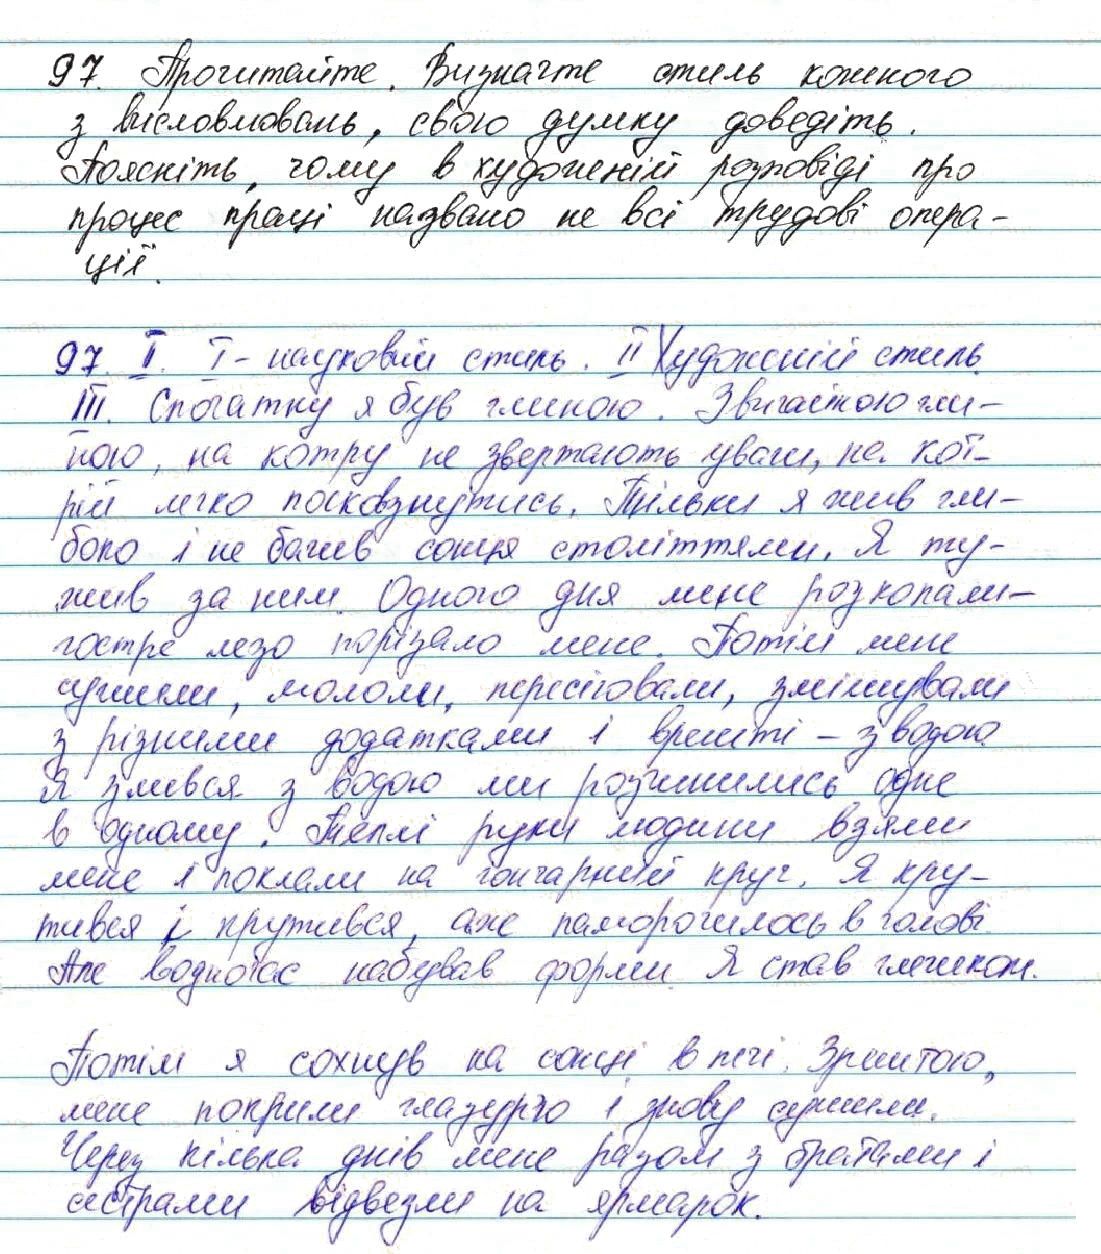 97. Прочитайте. Визначте стиль кожного
з висловлювань, свою думку доведіть.
Поясніть, чому в художній розповіді про
процес праці названо не всі трудові опера-
ції.
97. I. I - науковий стиль. II Художній стиль.
III. Спочатку я був глиною. Звичайною гли-
ною, на котру не звертають уваги, на кот-
рій легко посковзнутись. Тільки я жив гли-
боко і не бачив сонця століттями. Я ту-
жив за ним. Одного дня мене розкопали -
гостре лезо порізало мене. Потім мене
сушили, мололи, пересіювали, змішували
з різними додатками і врешті - з водою.
Я злився з водою ми розчинились одне
в одному. Теплі руки людини взяли
мене і поклали на гончарний круг. Я кру-
тився і крутився, аже паморочилось в голові.
Але водночас набував форми. Я став глечиком.
Потім я сохнув на сонці в печі. Зрештою,
мене покрили глазур'ю і знову сушили.
Через кілька днів мене разом з братами і
сестрами відвезли на ярмарок.